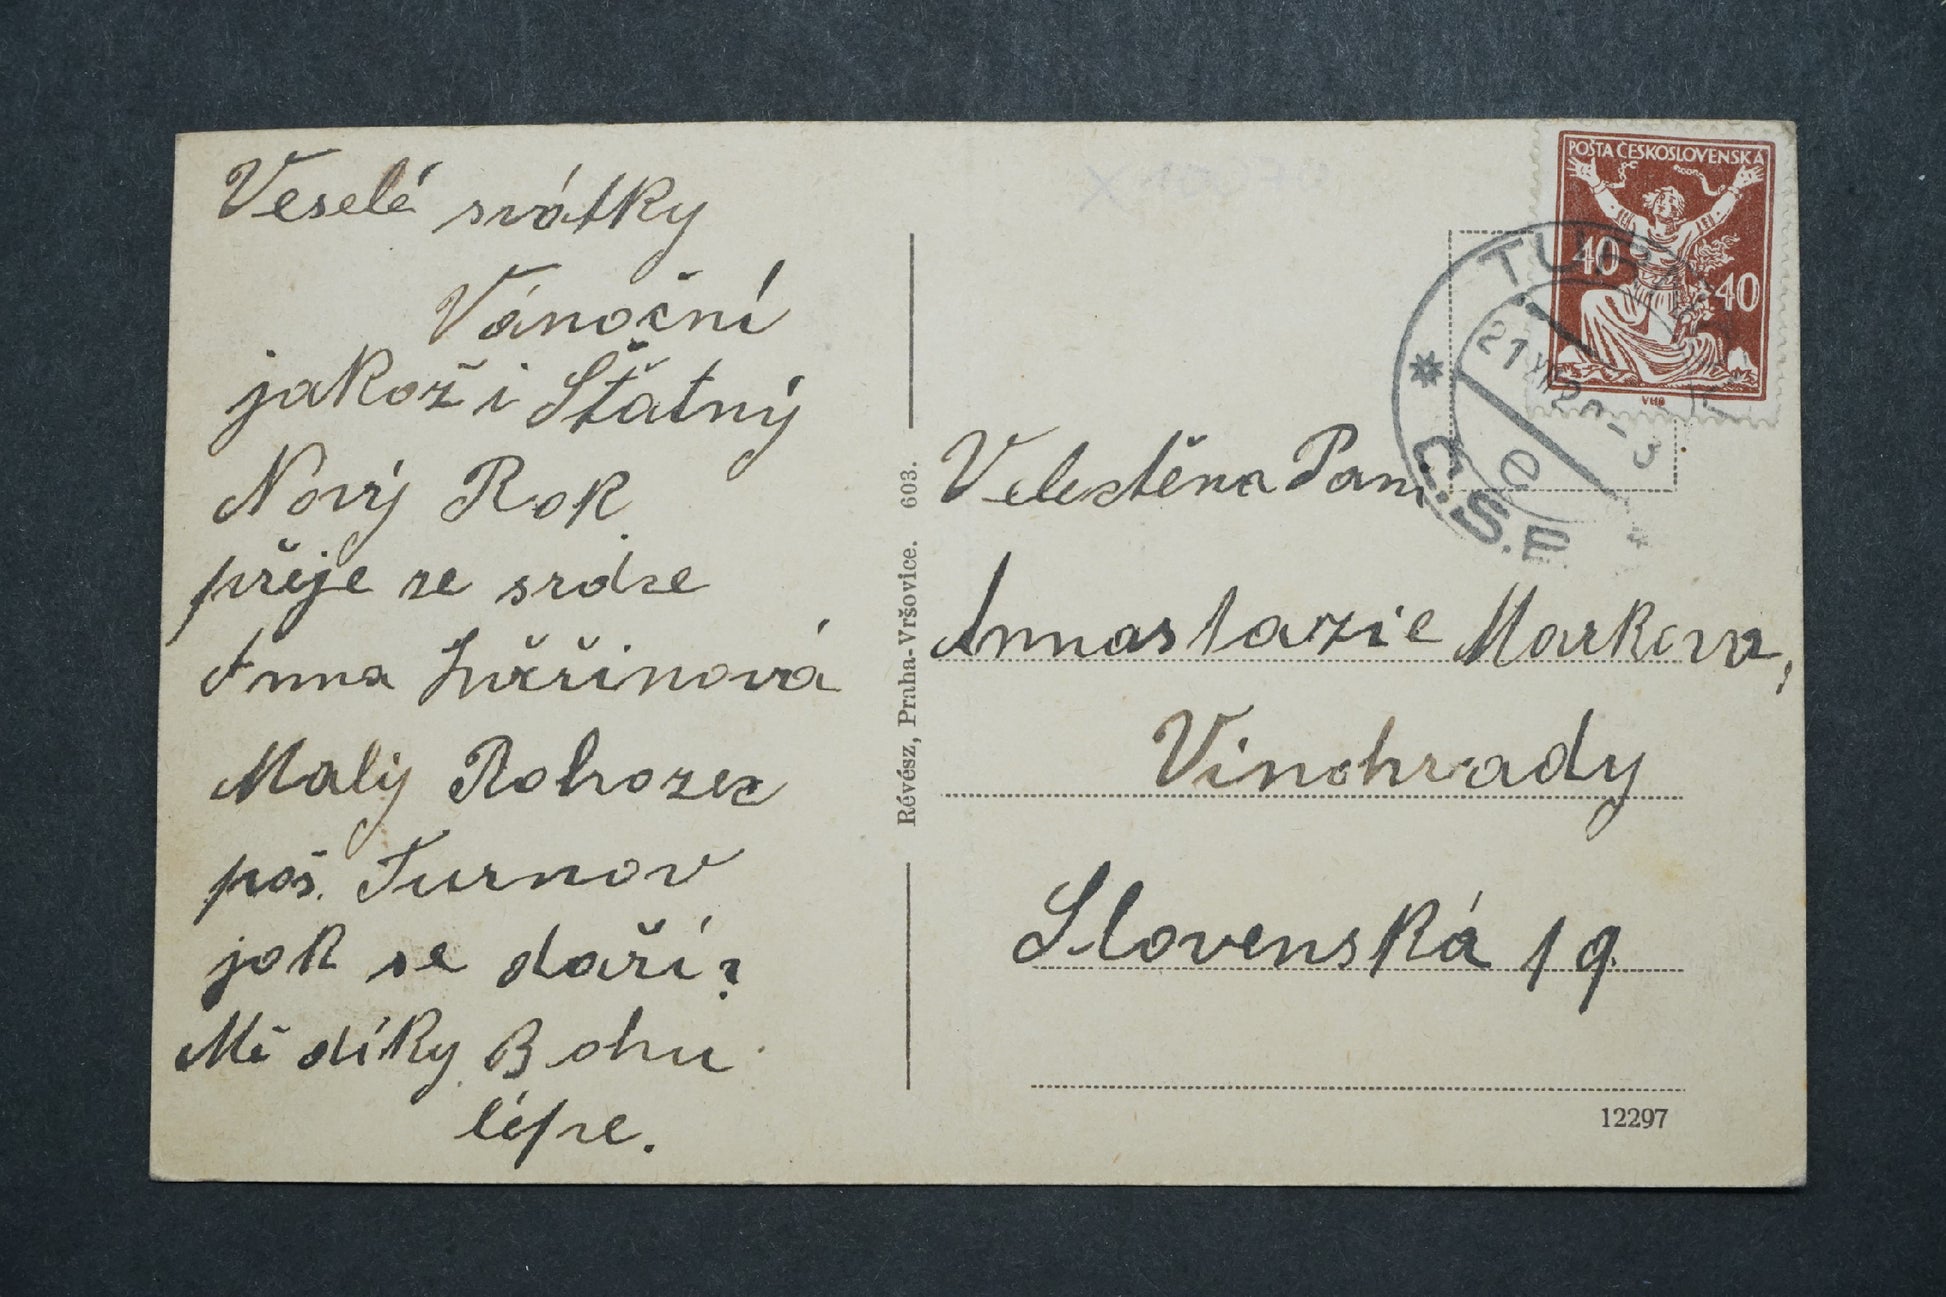 Veselé svátky
Vánoční
jakož i Šťatný
Nový Rok
přeje ze srdce
Anna
Malý Rohozec
poš. Turnov
jak se daří?
Mě díky Bohu
lépe.
Révész, Praha-Vršovice. 603.
POŠTA ČESKOSLOVENSKÁ
40 40
21 XII 2
e
Č.S.
Velectěna Paní
Annastazie Markova,
Vinohrady
Slovenská 19.
12297